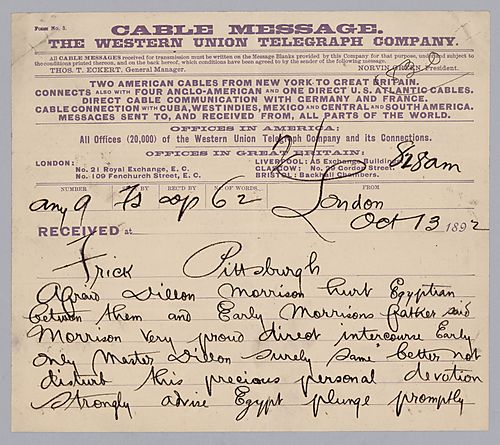 FORM No. 1.
CABLE MESSAGE.
THE WESTERN UNION TELEGRAPH COMPANY.
All CABLE MESSAGES received for transmission must be written on the Message Blanks provided by this Company for that purpose, under and subject to
the conditions printed thereon, and on the back hereof, which conditions have been agreed to by the sender of the following message.
THOS. T. ECKERT, General Manager. NORVIN GREEN, President.
TWO AMERICAN CABLES FROM NEW YORK TO GREAT BRITAIN.
CONNECTS ALSO WITH FOUR ANGLO-AMERICAN AND ONE DIRECT U.S. ATLANTIC CABLES.
DIRECT CABLE COMMUNICATION WITH GERMANY AND FRANCE.
CABLE CONNECTION WITH CUBA, WEST INDIES, MEXICO AND CENTRAL AND SOUTH AMERICA.
MESSAGES SENT TO, AND RECEIVED FROM, ALL PARTS OF THE WORLD.
OFFICES IN AMERICA:
All Offices (20,000) of the Western Union Telegraph Company and its Connections.
OFFICES IN GREAT BRITAIN:
LONDON: LIVERPOOL: A5 Exchange Buildings
No. 21 Royal Exchange, E. C. GLASGOW: No. 29 Gordon Street.
No. 109 Fenchurch Street, E. C. BRISTOL: Backhall Chambers.
828am
NUMBER SENT BY REC'D BY No. OF WORDS FROM
any 9 62 London
Oct 13 1892
RECEIVED at
Frick Pittsburgh
Afraid Dillon Morrison hurt Egyptian
between them and Early Morrisons father said
Morrison very proud direct intercourse Early
only Master Dillon surely same better not
disturb this precious personal devotion
strongly advise Egypt plunge promptly